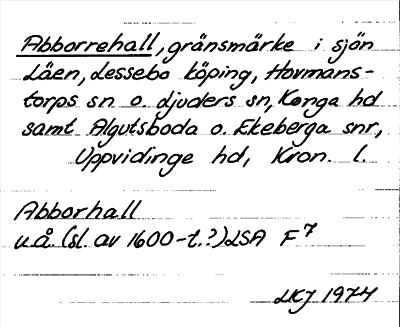 Abborrehall, gränsmärke i sjön
Läen, Lessebo köping, Hovmans-
torps sn o. Ljuders sn, Konga hd
samt Algutsboda o. Ekeberga snr,
Uppvidinge hd, Kron. l.
Abborhall
u.å. (sl. av 1600-t.?) LSA F 7
LKJ 1974